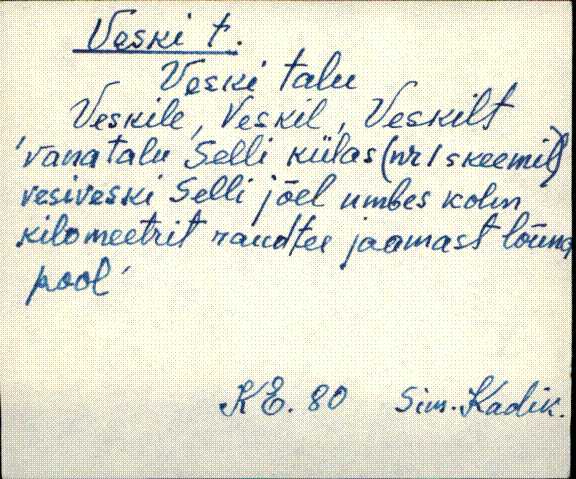 Veski t.
Veski talu
Veskile, Veskil, Veskilt
'vana talu Selli külas (nr 1 skeemil)
vesiveski Selli jõel umbes kolm
kilomeetrit raudtee jaamast lõuna
pool'
KE. 80 Sim. Kadik.